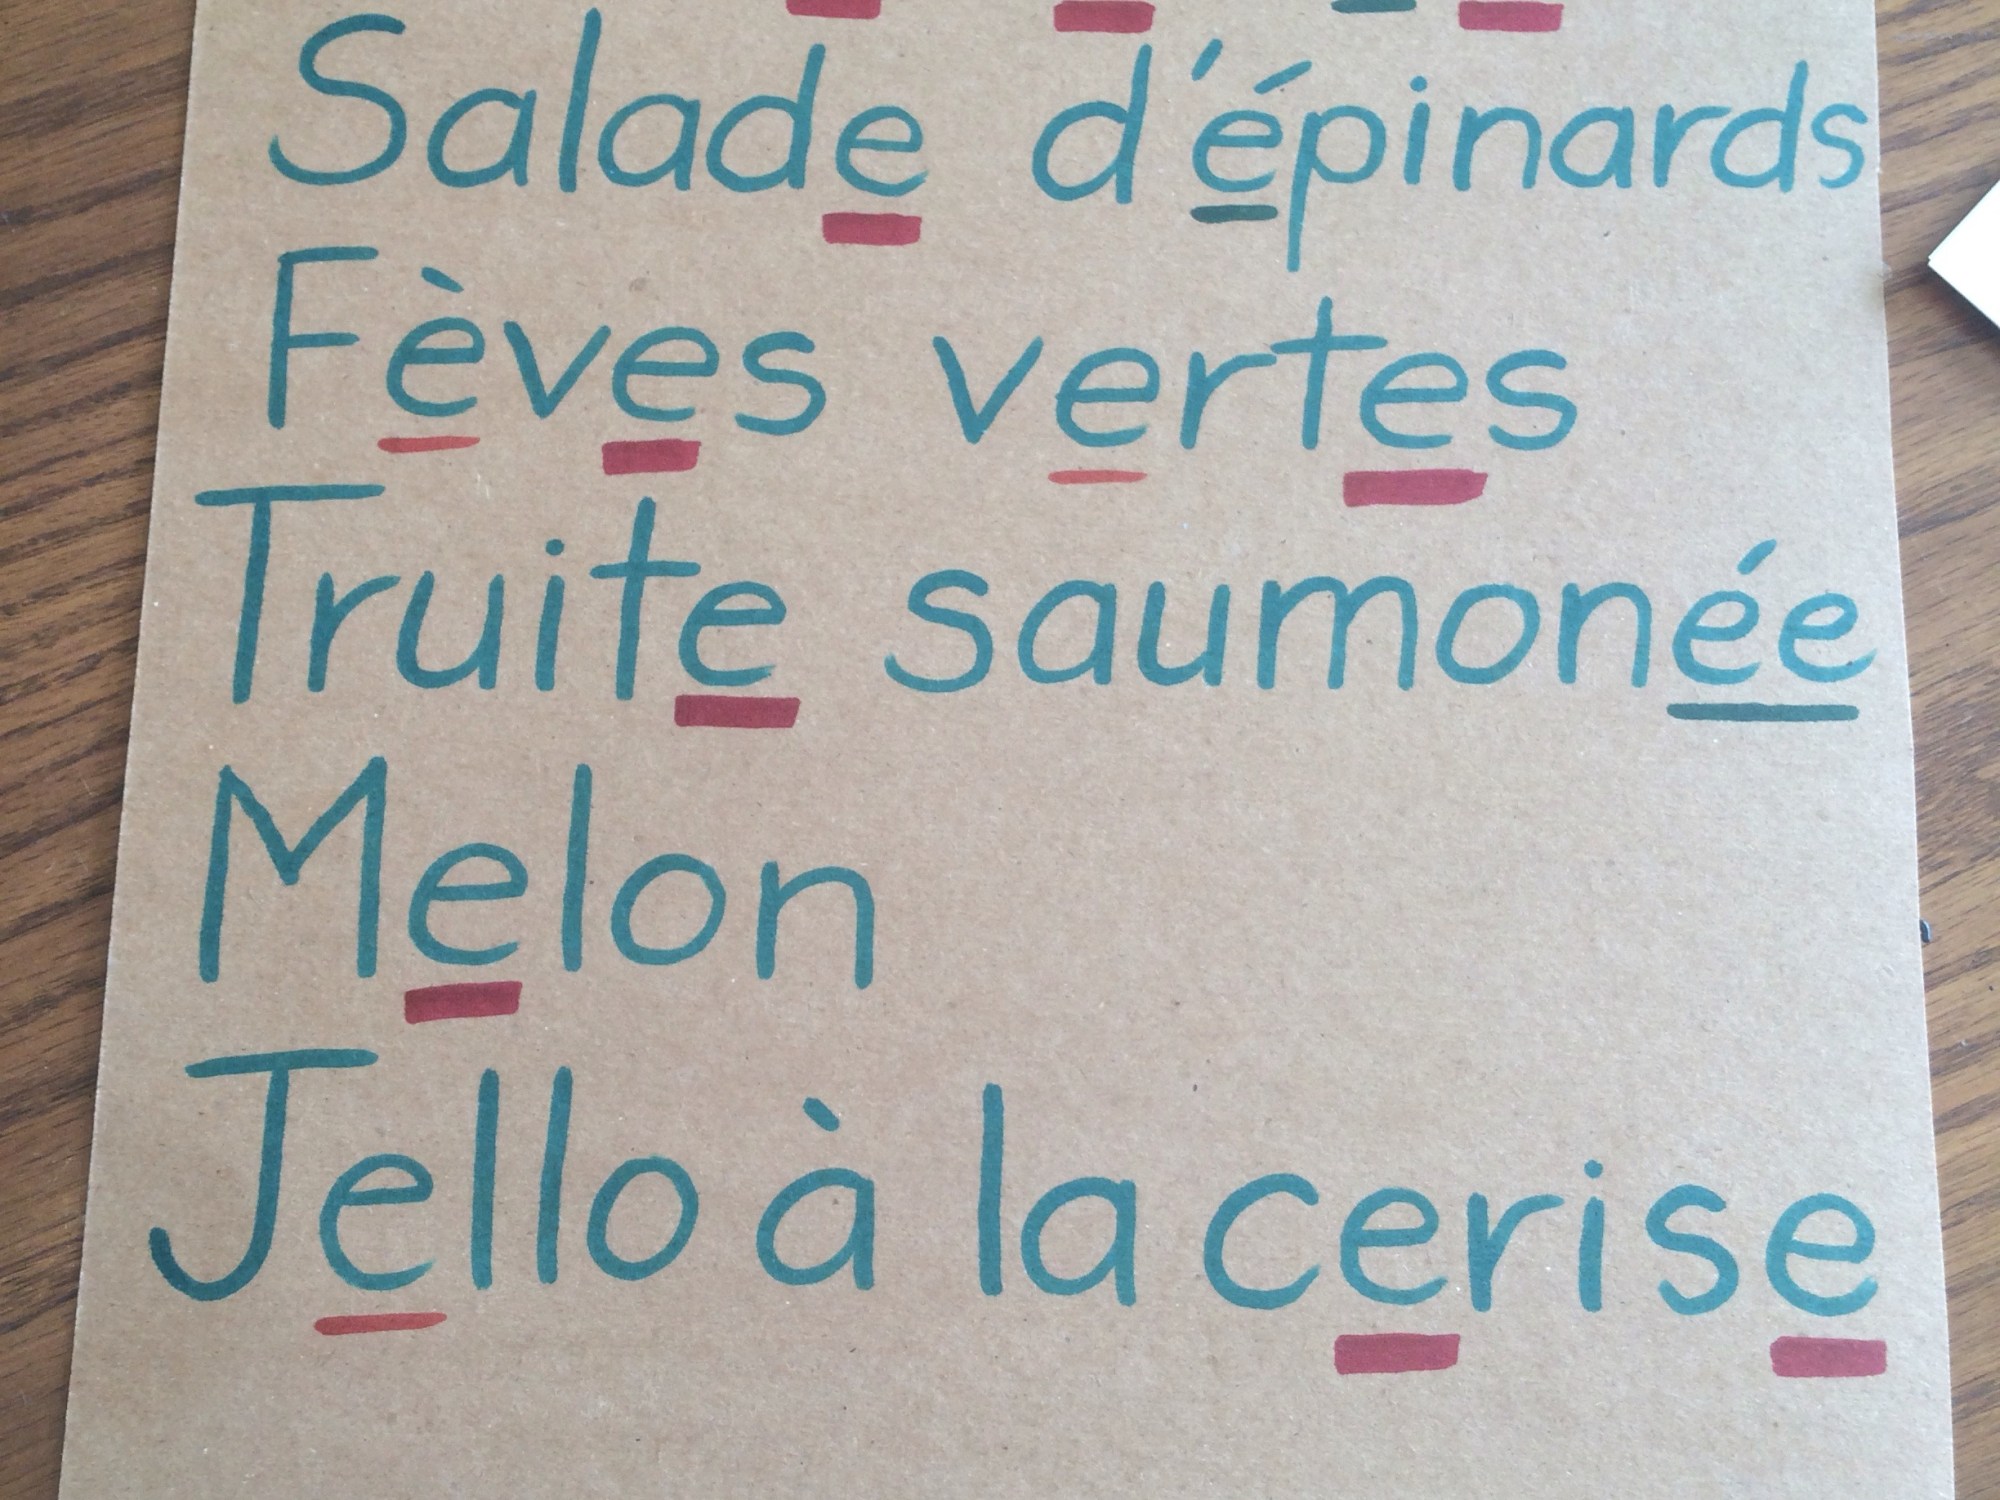 Salade d'épinards
Fèves vertes
Truite saumonée
Melon
Jello à la cerise